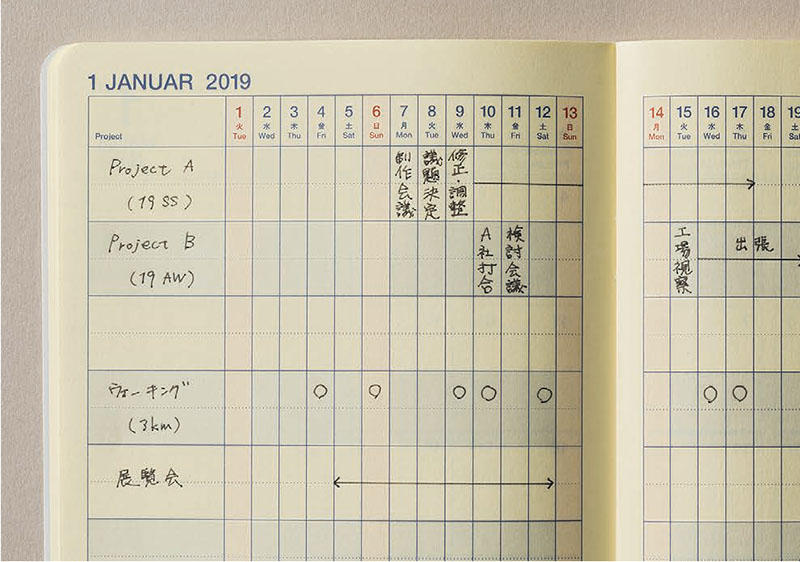 1 JANUAR 2019
Project
1 2 3 4 5 6 7 8 9 10 11 12 13 14 15 16 17 18 19
火 水 木 金 土 日 月 火 水 木 金 土 日 月 火 水 木 金 土
Tue Wed Thu Fri Sat Sun Mon Tue Wed Thu Fri Sat Sun Mon Tue Wed Thu Fri Sat
Project A
(19 SS)
制作会議
議題決定
修正・調整
Project B
(19 AW)
A社打合
検討会議
工場視察
出張
ウォーキング
(3km)
展覧会